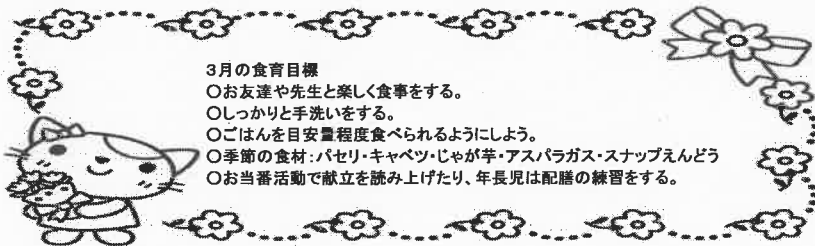 3月の食育目標
○お友達や先生と楽しく食事をする。
○しっかりと手洗いをする。
○ごはんを目安量程度食べられるようにしよう。
○季節の食材:パセリ・キャベツ・じゃが芋・アスパラガス・スナップえんどう
○お当番活動で献立を読み上げたり、年長児は配膳の練習をする。